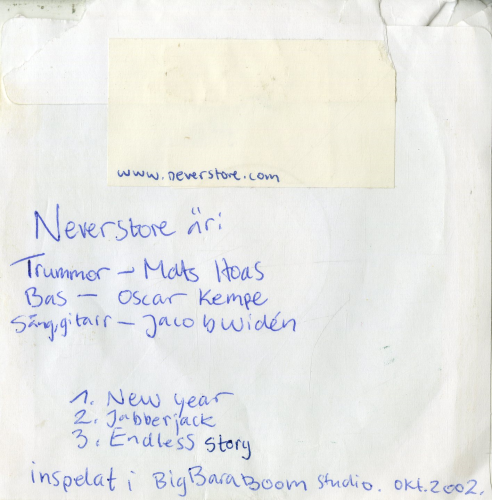 www.neverstore.com
Neverstore är:
Trummor - Mats Hoas
Bas - Oscar Kempe
Sång, gitarr - Jacob Widén
1. New year
2. Jabberjack
3. Endless Story
inspelat i BigBaraBoom Studio. okt. 2002.